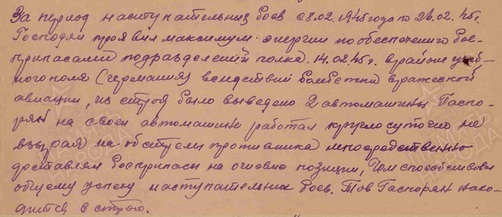 За период наступательных боев с 8.02.1945 года по 26.02.45г.
Господян проявил максимум энергии по обеспечению бое-
припасами подразделений полка. 14.02.45г. в районе
ного поля (Германия) вследствии бомбежки вражеской
авиации, из строя было выведено 2 автомашины. Гаспо-
рян на своей автомашине работал круглосуточно не
взирая на обстрелы противника непосредственно
доставлял боеприпасы на огневые позиции, чем способствовал
общему успеху наступательных боев. Тов Гаспорян нахо-
дится в строю.